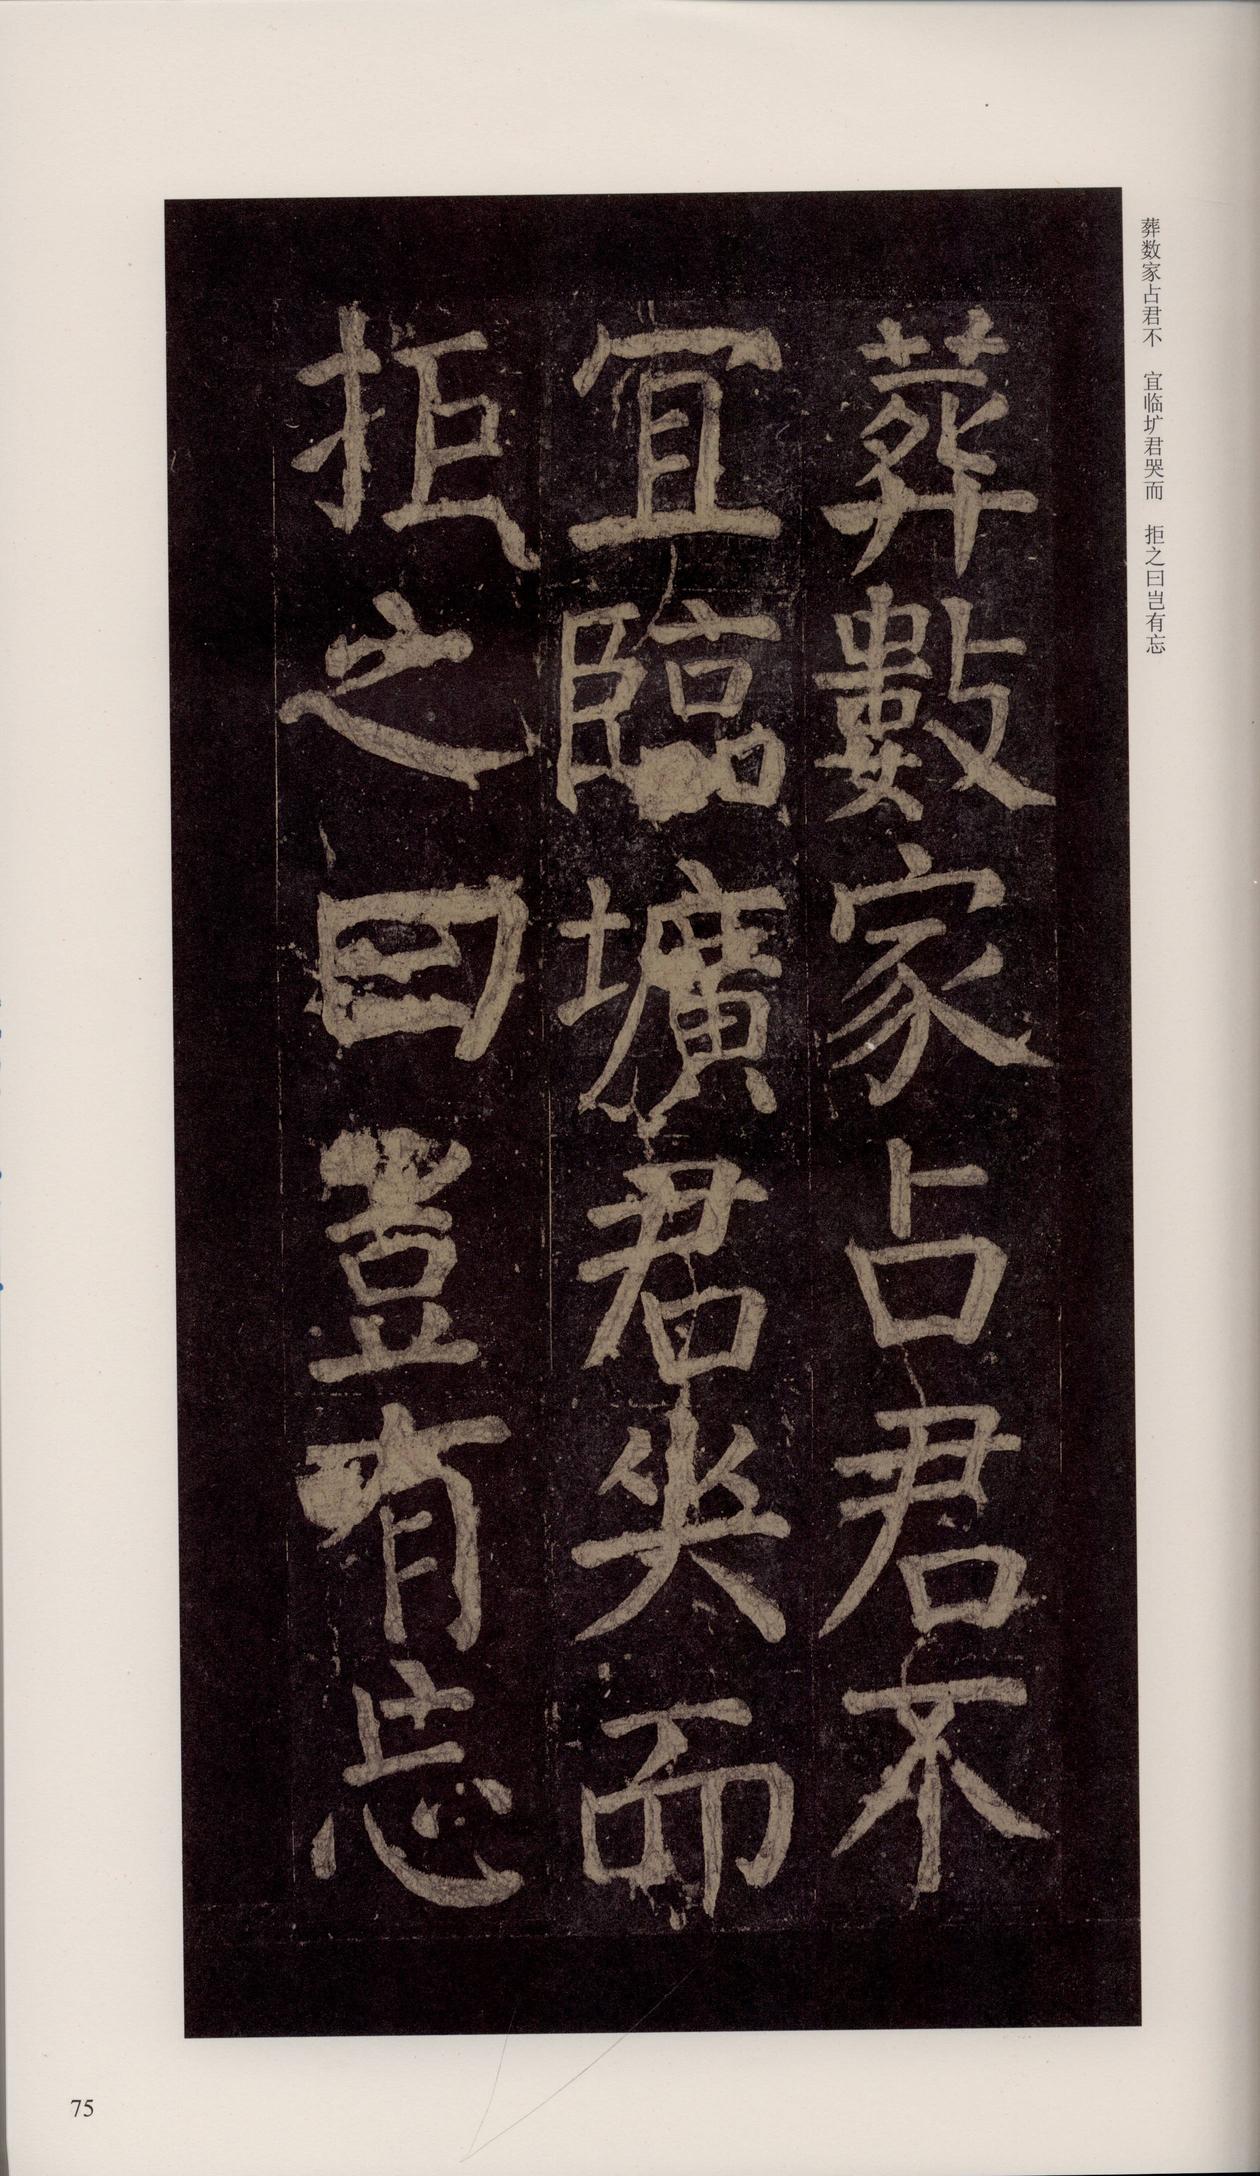 葬数家占君不 宜临圹君哭而 拒之曰岂有忘
葬數家占君不
宜臨壙君哭而
拒之曰豈有忘
75